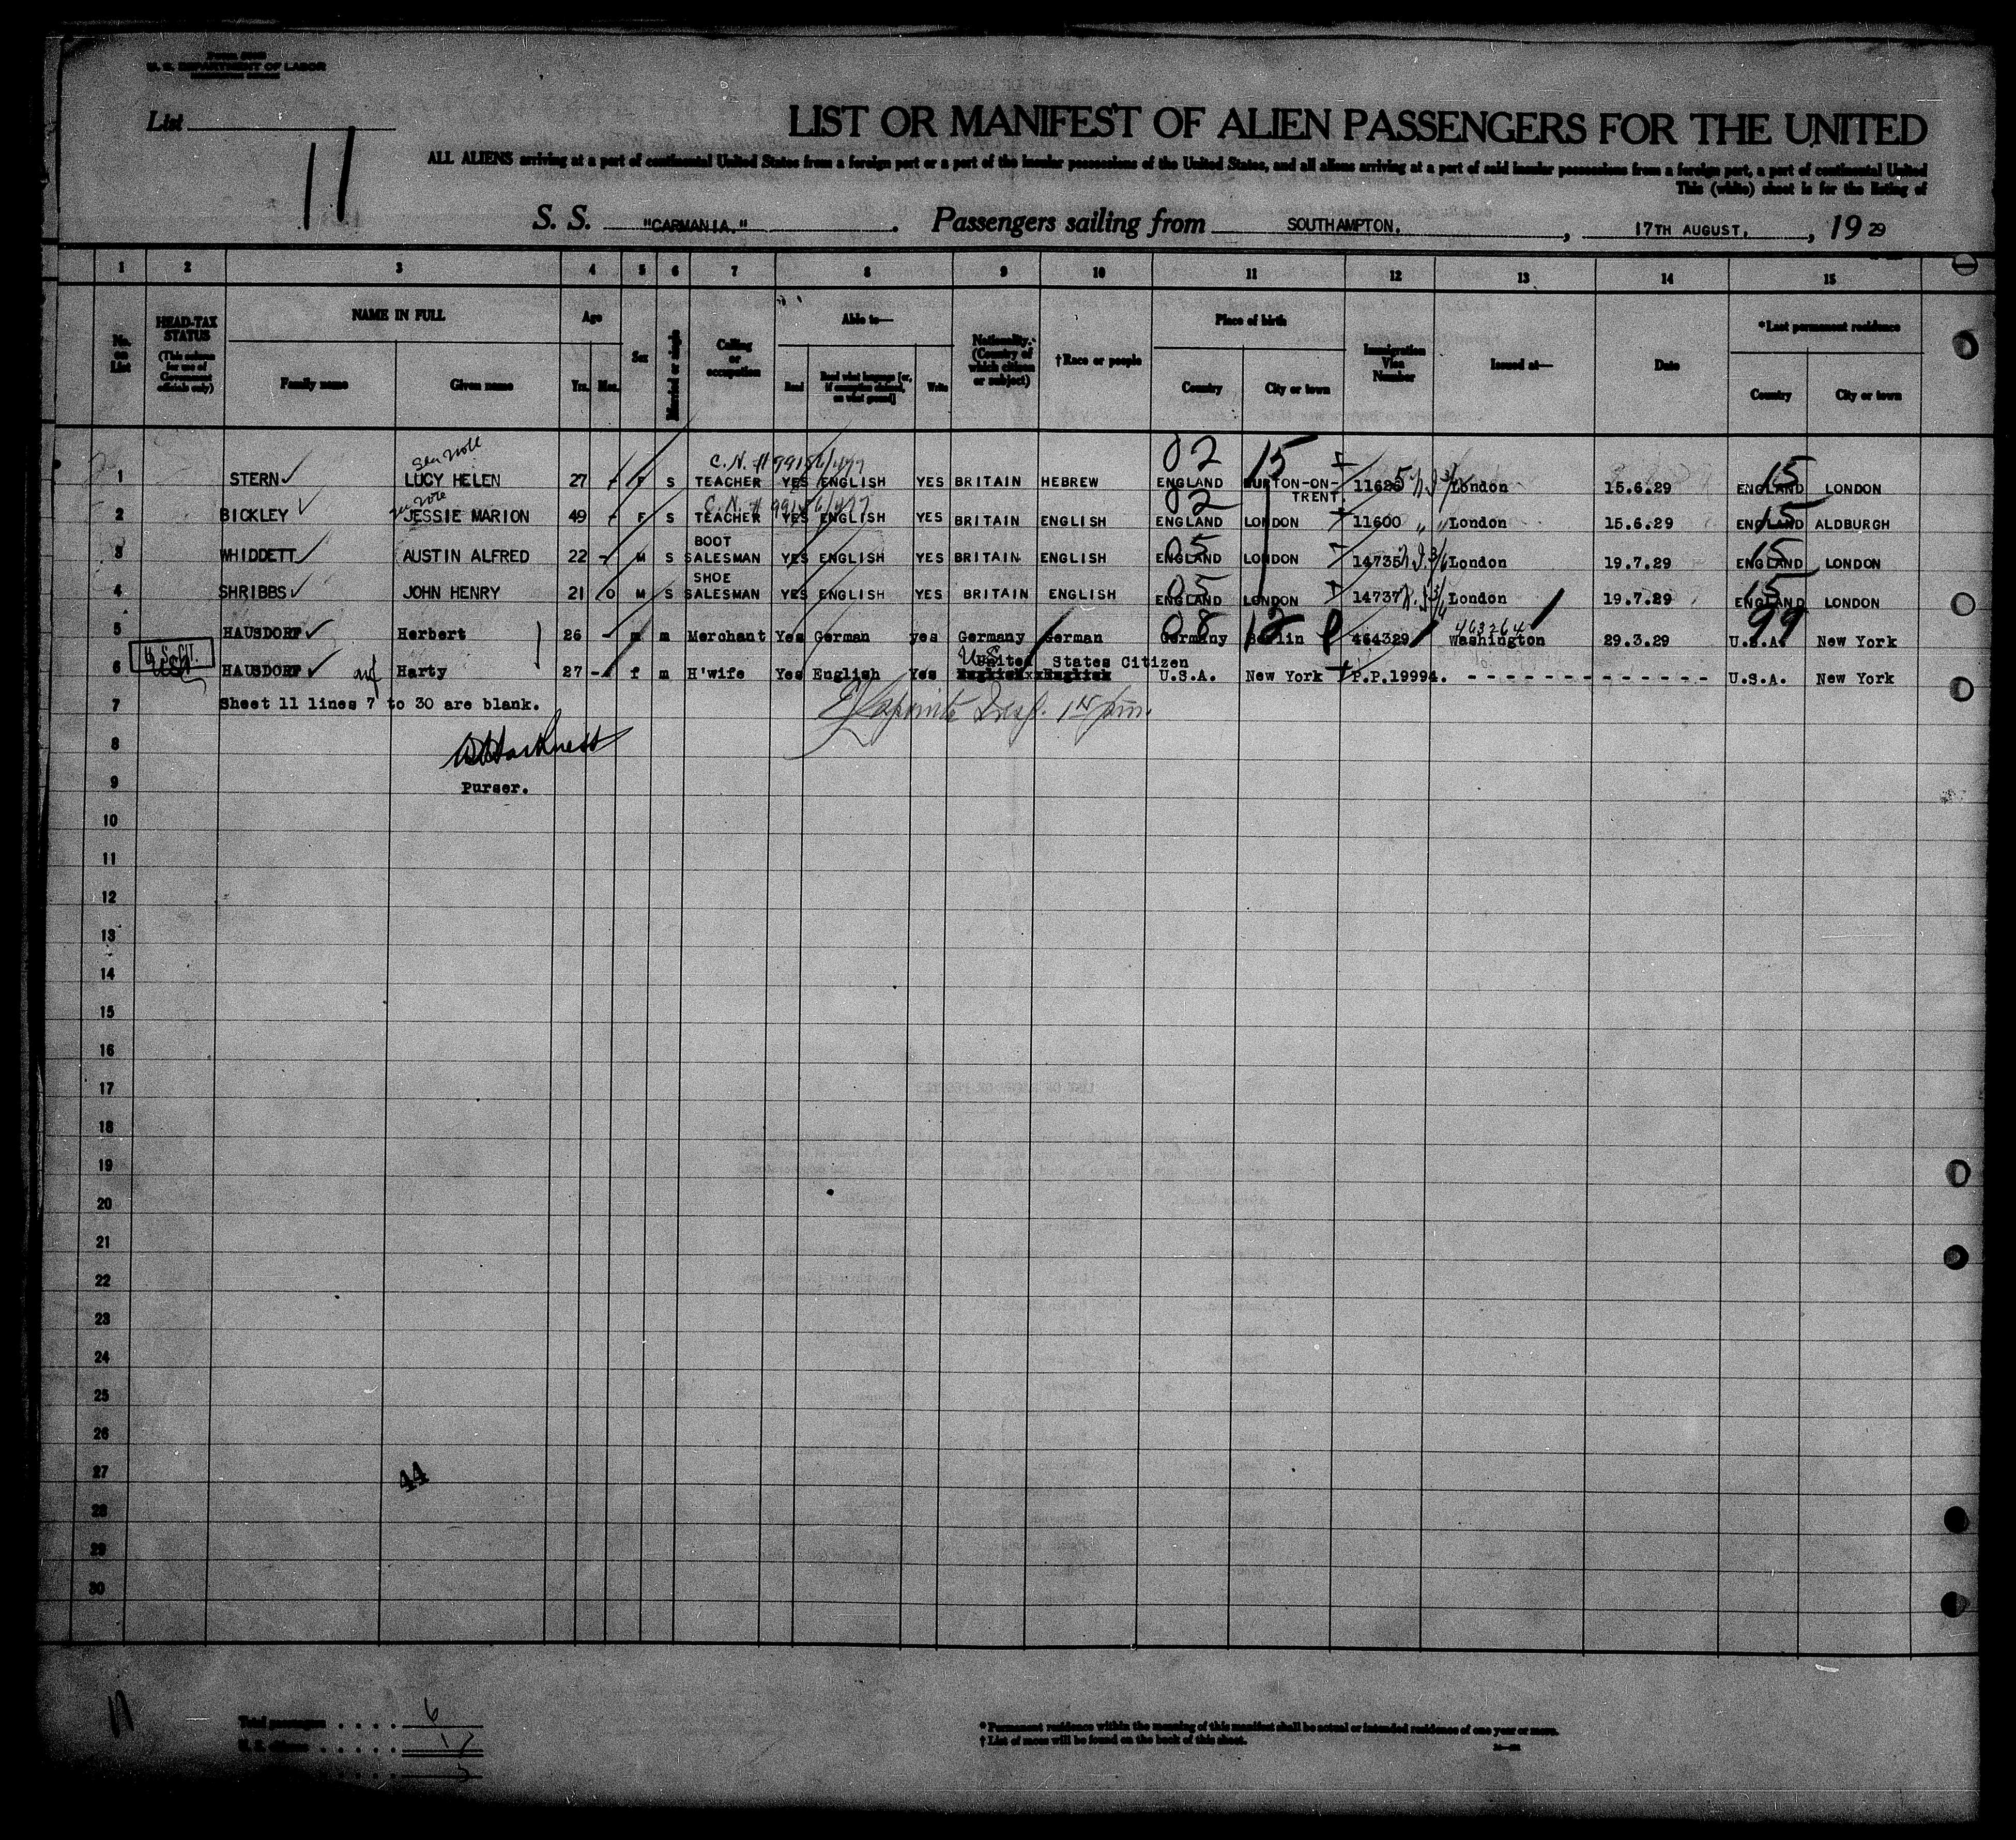 U. S. DEPARTMENT OF LABOR
List
11
LIST OR MANIFEST OF ALIEN PASSENGERS FOR THE UNITED
ALL ALIENS arriving at a port of continental United States from a foreign port or a port of the insular possessions of the United States, and all aliens arriving at a port of said insular possessions from a foreign port, a port of continental United
This (white) sheet is for the listing of
S. S. "CARMANIA." Passengers sailing from SOUTHAMPTON, 17TH AUGUST, 1929
1 2 3 4 5 6 7 8 9 10 11 12 13 14 15
No. on List
HEAD-TAX STATUS (This column for use of Government officials only)
NAME IN FULL
Family name Given name
Age
Yrs. Mos.
Sex
Married or single
Calling or occupation
Able to—
Read Read what language [or, if exemption claimed, on what ground] Write
Nationality. (Country of which citizen or subject)
†Race or people
Place of birth
Country City or town
Immigration Visa Number
Issued at—
Date
*Last permanent residence
Country City or town
C. N. # 99156/477 02 15 15
1 STERN LUCY HELEN 27 - F S TEACHER YES ENGLISH YES BRITAIN HEBREW ENGLAND BURTON-ON-TRENT 11625 London 15.6.29 ENGLAND LONDON
C. N. # 99156/477 02 15
2 BICKLEY JESSIE MARION 49 - F S TEACHER YES ENGLISH YES BRITAIN ENGLISH ENGLAND LONDON 11600 London 15.6.29 ENGLAND ALDBURGH
05 15
3 WHIDDETT AUSTIN ALFRED 22 - M S BOOT SALESMAN YES ENGLISH YES BRITAIN ENGLISH ENGLAND LONDON 14735 London 19.7.29 ENGLAND LONDON
05 15
4 SHRIBBS JOHN HENRY 21 0 M S SHOE SALESMAN YES ENGLISH YES BRITAIN ENGLISH ENGLAND LONDON 14737 London 19.7.29 ENGLAND LONDON
08 12 463264 99
5 HAUSDORF Herbert 26 - m m Merchant Yes German yes Germany German Germany Berlin 464329 Washington 29.3.29 U.S.A. New York
U. S. CIT.
USC
U.S.
6 HAUSDORF Harty 27 - f m H'wife Yes English Yes United States Citizen U.S.A. New York P.P.19994. - - - - - - - - - - - - - U.S.A. New York
7 Sheet 11 lines 7 to 30 are blank.
8
9 Purser.
10
11
12
13
14
15
16
17
18
19
20
21
22
23
24
25
26
27
44
28
29
30
11
Total passengers . . . . 6
U. S. citizens . . . . .
* Permanent residence within the meaning of this manifest shall be actual or intended residence of one year or more.
† List of races will be found on the back of this sheet.